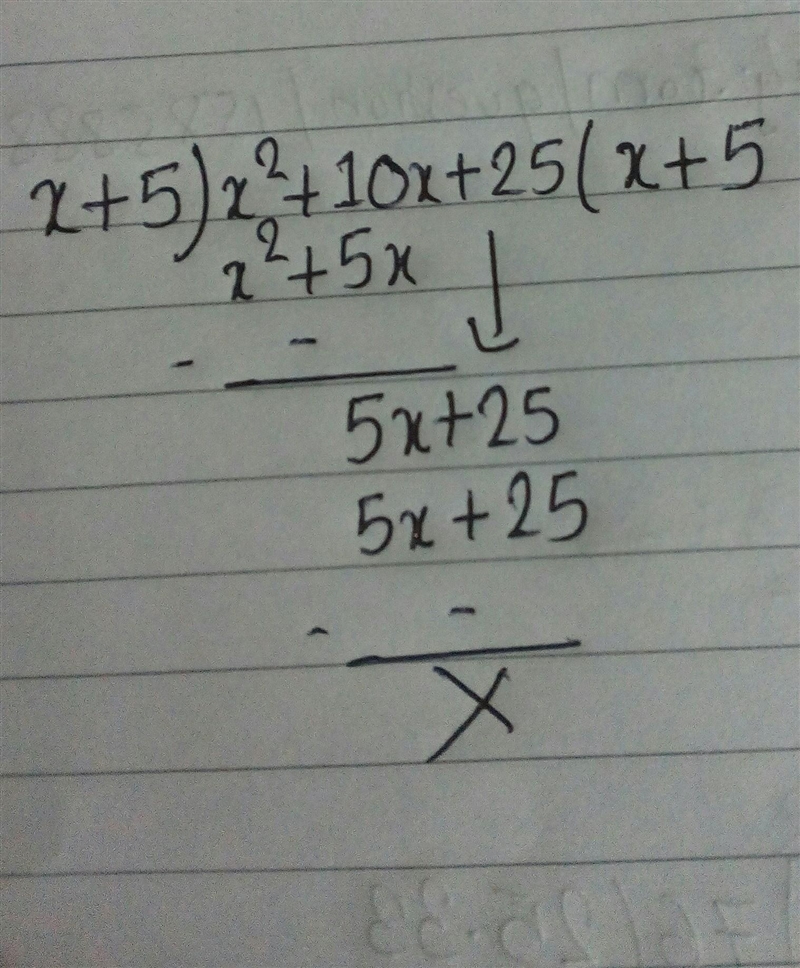 x+5)x²+10x+25(x+5
x²+5x ↓
- -
5x+25
5x+25
- -
X